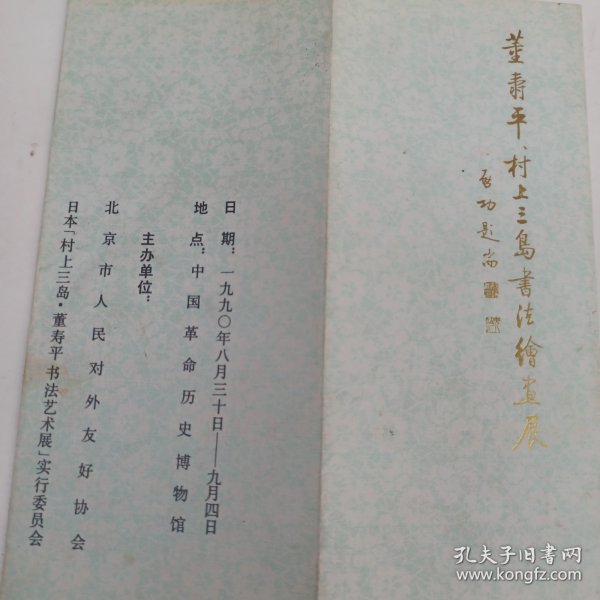 董寿平、村上三島書法繪畫展
启功题耑
日期：一九九〇年八月三十日——九月四日
地点：中国革命历史博物馆
主办单位：
北京市人民对外友好协会
日本「村上三岛·董寿平书法艺术展」实行委员会
孔夫子旧书网
www.kongfz.com